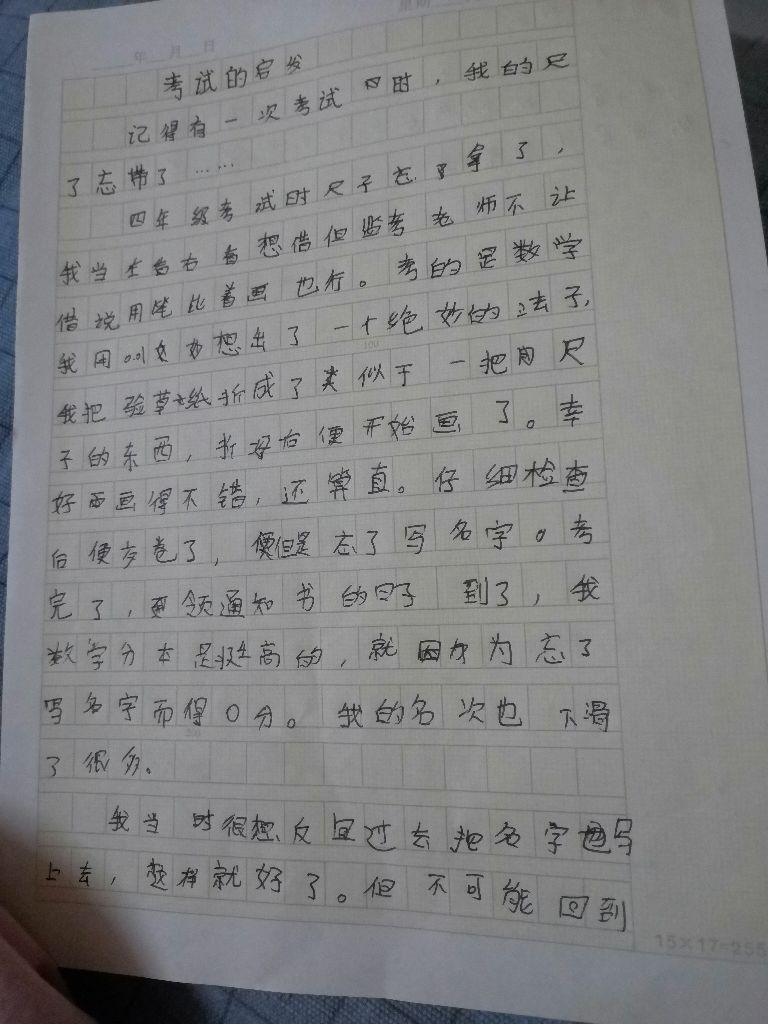 年 月 日
星期
考试的启发
记得有一次考试 时，我的尺
了忘带了……
四年级考试时尺子忘了拿了，
我当 右看想借但监考老师不让
借说用笔比着画也行。考的是数学
我用 想出了一个绝妙的法子，
我把验草纸折成了类似于一把 尺
子的东西，折好后便开始画了。幸
好 画得不错，还算直。仔细检查
后便交卷了，但是忘了写名字。考
完了，到领通知书的日子到了，我
数学分本是挺高的，就因 为忘了
写名字而得0分。我的名次也下滑
了很多。
我当时很想反回过去把名字 写
上去，这样就好了。但不可能回到
15×17=255